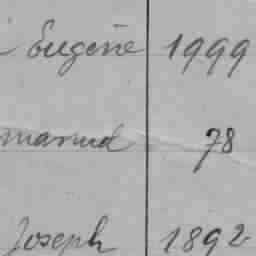 Eugène 1999
78
Joseph 1892